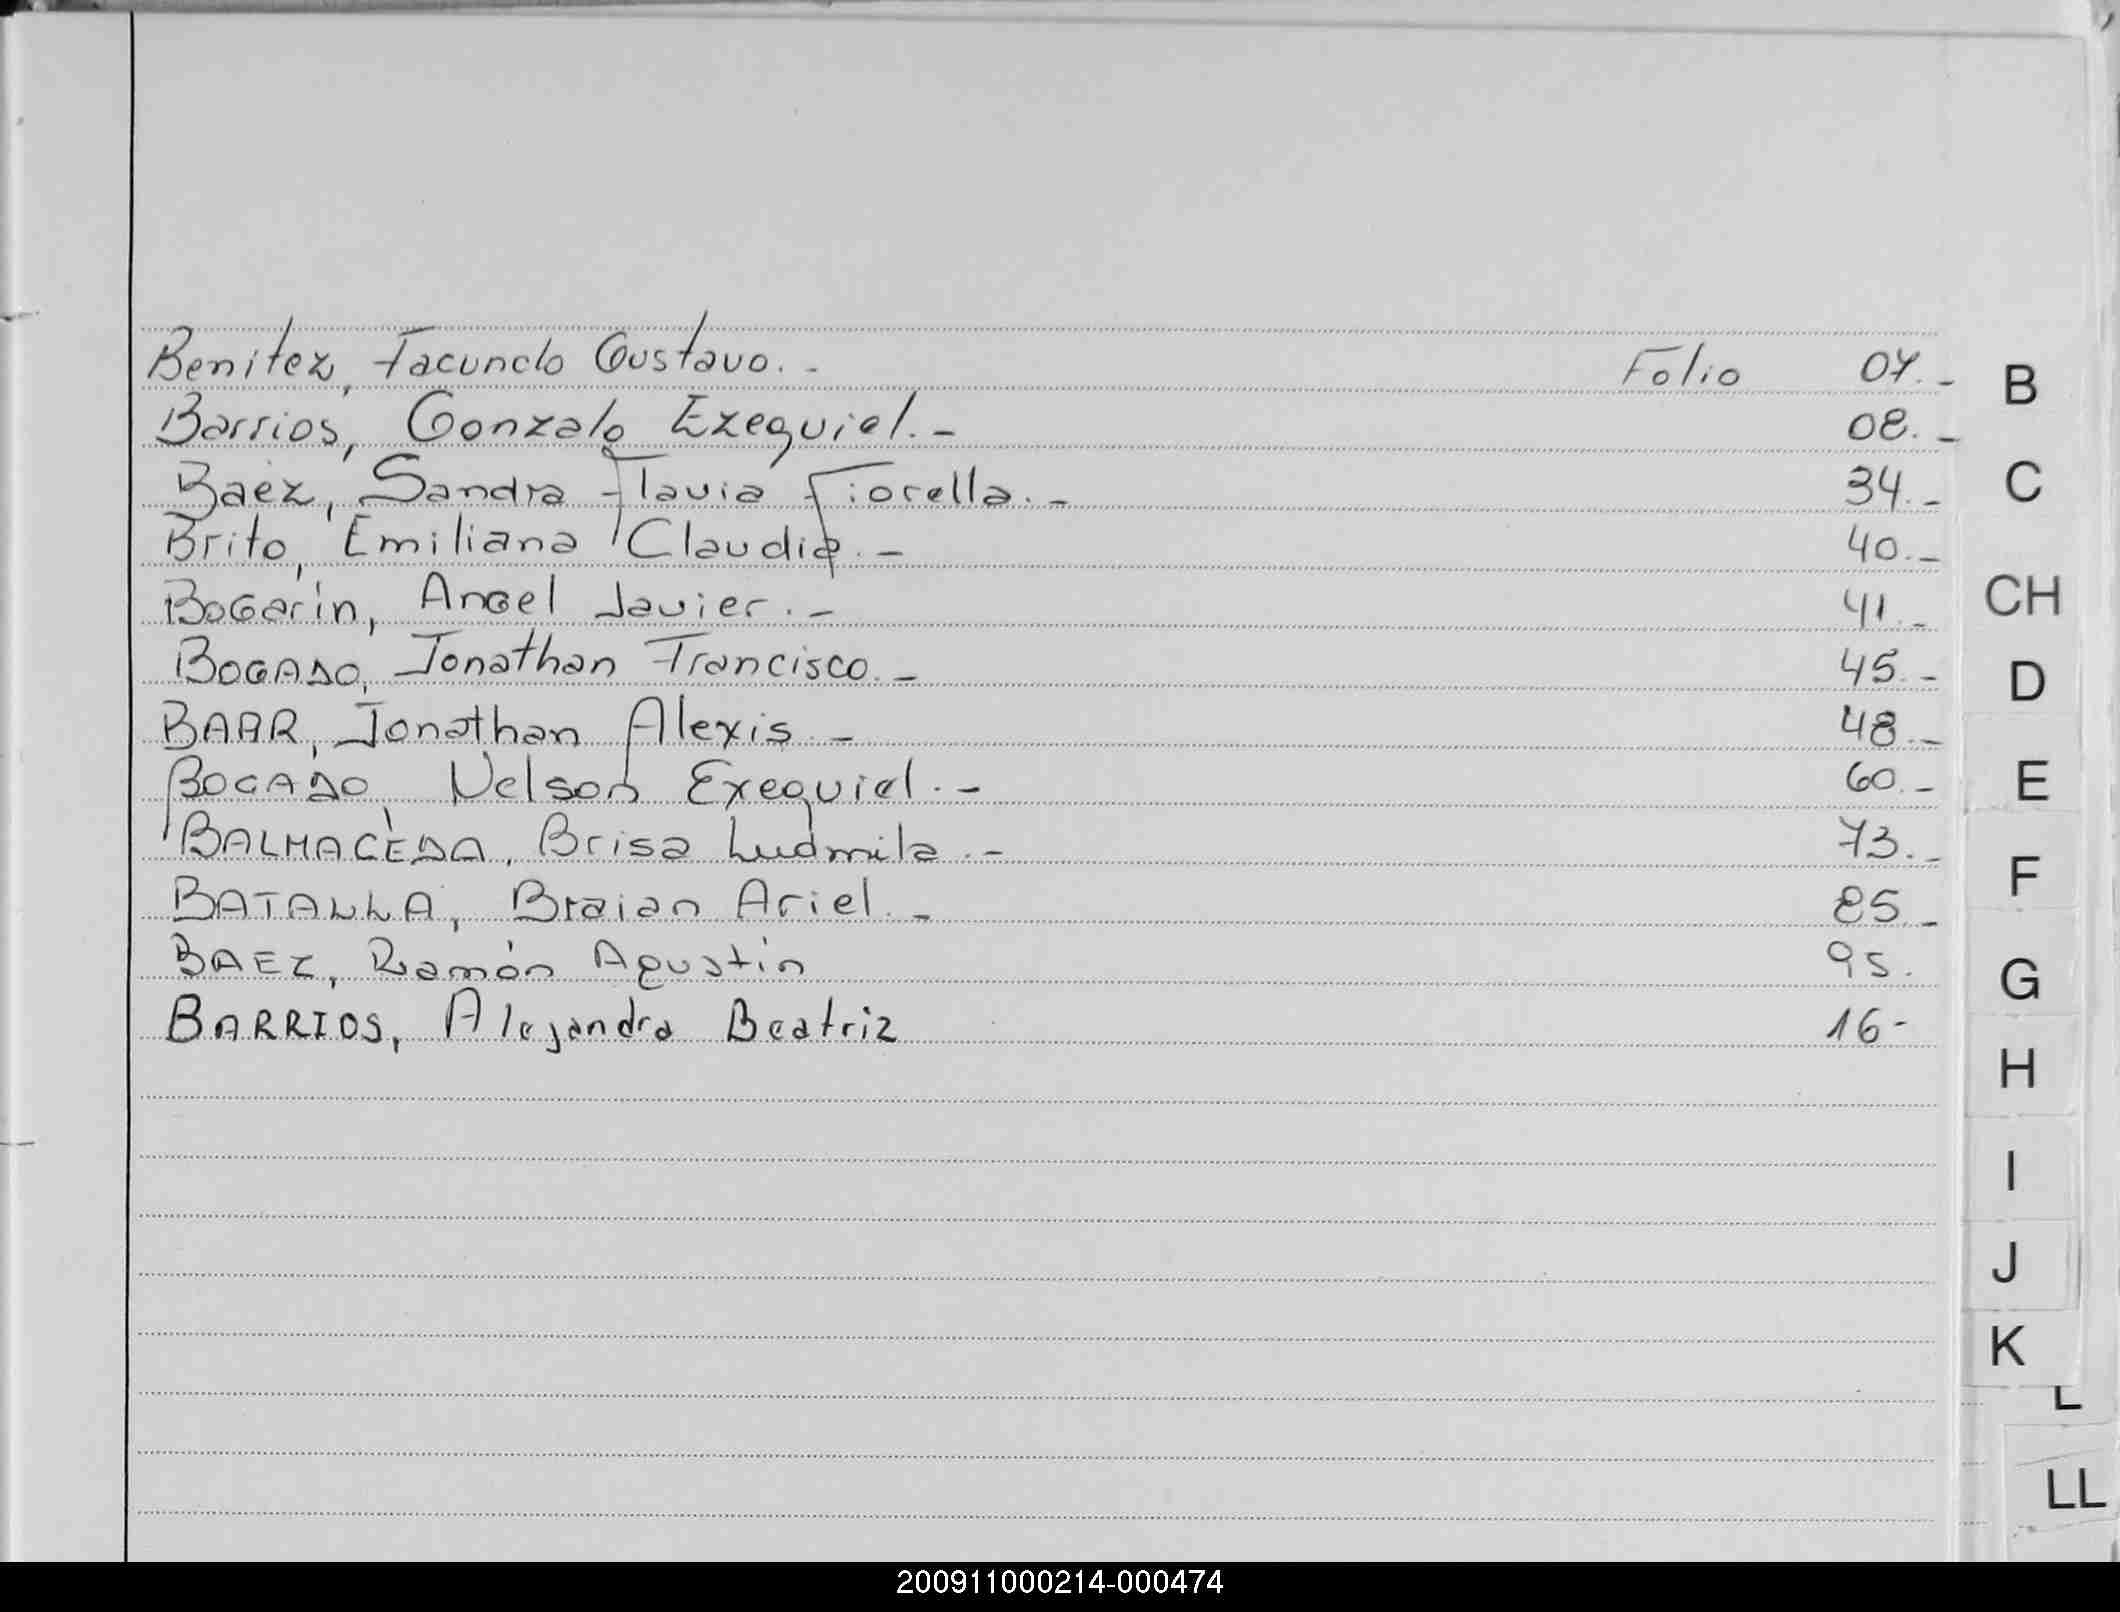 Benitez, Facundo Gustavo. - Folio 07. -
Barrios, Gonzalo Ezequiel. - 08. -
Baéz, Sandra Flavia Fiorella. - 34. -
Brito, Emiliana Claudia. - 40. -
BoGarín, Angel Javier. - 41. -
BOGADO, Jonathan Francisco. - 45. -
BAAR, Jonathan Alexis. - 48. -
BOGADO, Nelson Exequiel. - 60. -
BALMACEDA, Brisa Ludmila. - 73. -
BATALLA, Braian Ariel. - 85. -
BAEZ, Ramón Agustin 95.
BARRIOS, Alejandra Beatriz 16-
B
C
CH
D
E
F
G
H
I
J
K
L
LL
200911000214-000474